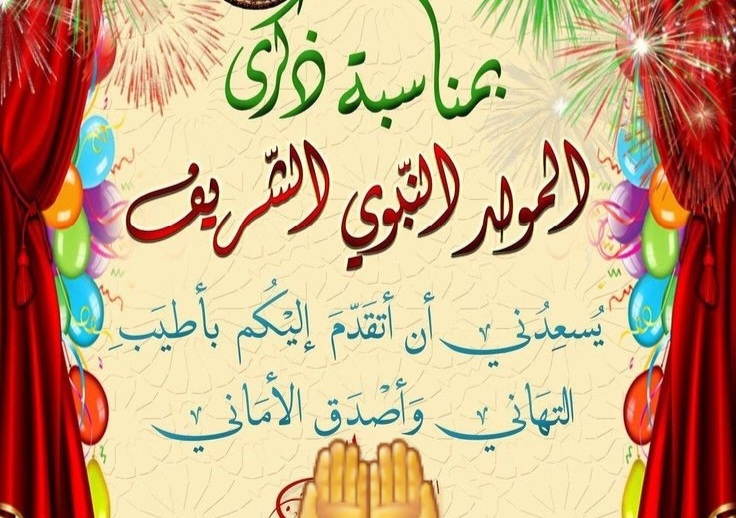 بمناسبة ذكرى
المولد النّبوي الشّريف
يُسعِدُني أن أتقَدّمَ إليْكُم بأطيَبِ
التهَاني وَأصْدَق الأمَاني